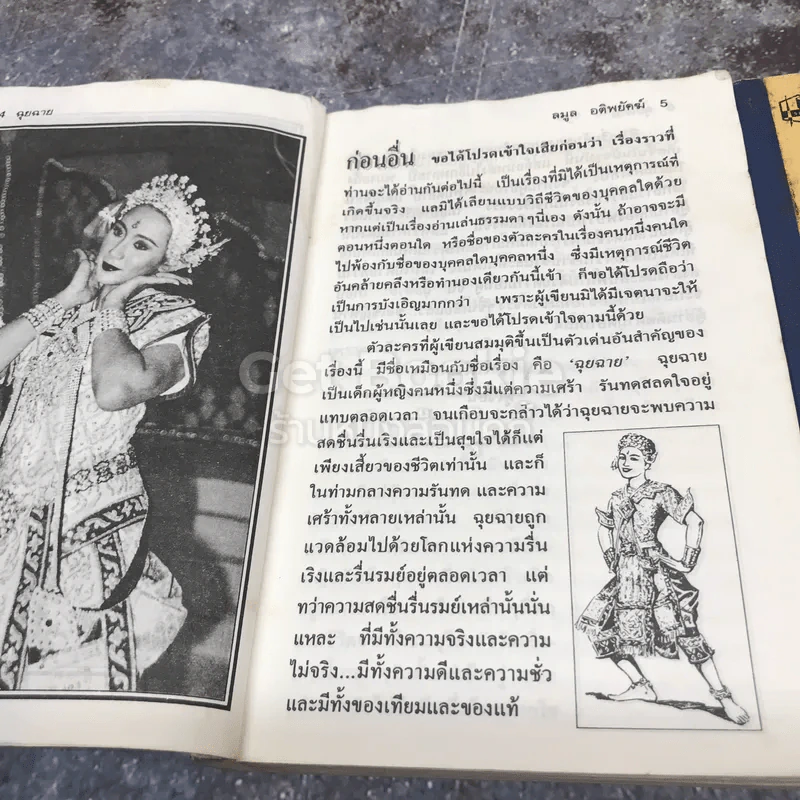 4 ฉุยฉาย
ลมูล อติพยัคฆ์ 5
ก่อนอื่น ขอได้โปรดเข้าใจเสียก่อนว่า เรื่องราวที่
ท่านจะได้อ่านกันต่อไปนี้ เป็นเรื่องที่มิได้เป็นเหตุการณ์ที่
เกิดขึ้นจริง แลมิได้เลียนแบบวิถีชีวิตของบุคคลใดด้วย
หากแต่เป็นเรื่องอ่านเล่นธรรมดาๆนี่เอง ดังนั้น ถ้าอาจจะมี
ตอนหนึ่งตอนใด หรือชื่อของตัวละครในเรื่องคนหนึ่งคนใด
ไปพ้องกับชื่อของบุคคลใดบุคคลหนึ่ง ซึ่งมีเหตุการณ์ชีวิต
อันคล้ายคลึงหรือทำนองเดียวกันนี้เข้า ก็ขอได้โปรดถือว่า
เป็นการบังเอิญมากกว่า เพราะผู้เขียนมิได้มีเจตนาจะให้
เป็นไปเช่นนั้นเลย และขอได้โปรดเข้าใจตามนี้ด้วย
ตัวละครที่ผู้เขียนสมมุติขึ้นเป็นตัวเด่นอันสำคัญของ
เรื่องนี้ มีชื่อเหมือนกับชื่อเรื่อง คือ ‘ฉุยฉาย’ ฉุยฉาย
เป็นเด็กผู้หญิงคนหนึ่งซึ่งมีแต่ความเศร้า รันทดสลดใจอยู่
แทบตลอดเวลา จนเกือบจะกล่าวได้ว่าฉุยฉายจะพบความ
สดชื่นรื่นเริงและเป็นสุขใจได้ก็แต่
เพียงเสี้ยวของชีวิตเท่านั้น และก็
ในท่ามกลางความรันทด และความ
เศร้าทั้งหลายเหล่านั้น ฉุยฉายถูก
แวดล้อมไปด้วยโลกแห่งความรื่น
เริงและรื่นรมย์อยู่ตลอดเวลา แต่
ทว่าความสดชื่นรื่นรมย์เหล่านั้นนั่น
แหละ ที่มีทั้งความจริงและความ
ไม่จริง...มีทั้งความดีและความชั่ว
และมีทั้งของเทียมและของแท้